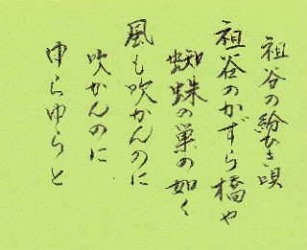 祖谷の粉ひき唄
祖谷のかずら橋や
蜘蛛の巣の如く
風も吹かんのに
吹かんのに
ゆらゆらと